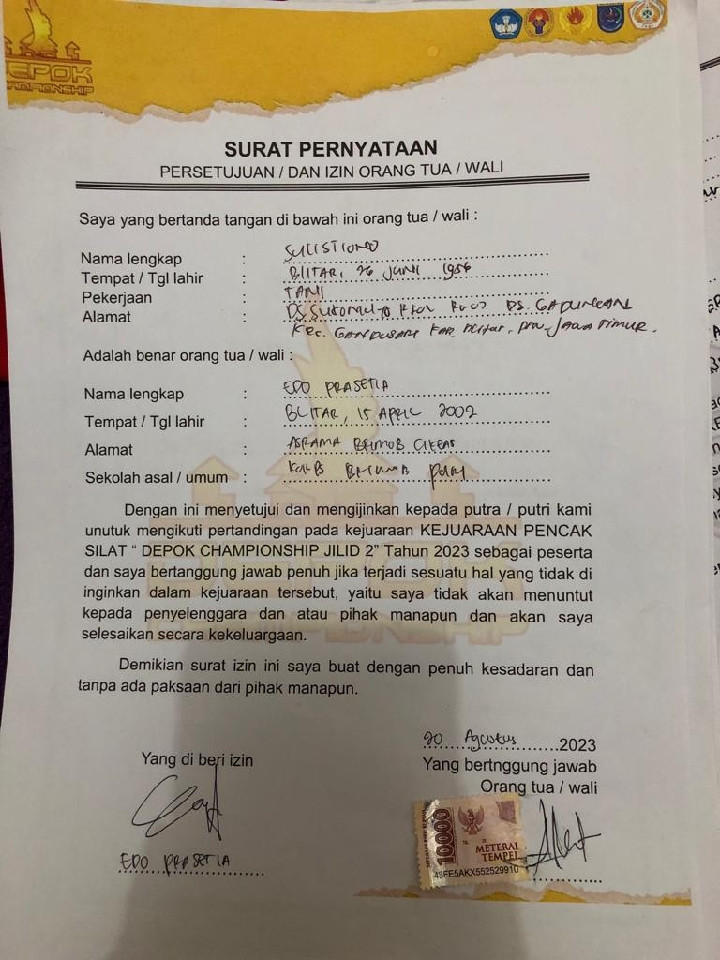 DEPOK
CHAMPIONSHIP
SURAT PERNYATAAN
PERSETUJUAN / DAN IZIN ORANG TUA / WALI
Saya yang bertanda tangan di bawah ini orang tua / wali :
Nama lengkap : SULISTIONO
Tempat / Tgl lahir : BLITAR, 26 JUNI 1956
Pekerjaan : TANI
Alamat : DS. DS. GADUNGAN
KEC. GANDUSARI KAB. BLITAR, PROV. JAWA TIMUR.
Adalah benar orang tua / wali :
Nama lengkap : EDO PRASETIA
Tempat / Tgl lahir : BLITAR, 15 APRIL 2002
Alamat : ASRAMA BRIMOB CIKEAS
Sekolah asal / umum : BRIMOB POLRI
Dengan ini menyetujui dan mengijinkan kepada putra / putri kami
unutuk mengikuti pertandingan pada kejuaraan KEJUARAAN PENCAK
SILAT “ DEPOK CHAMPIONSHIP JILID 2” Tahun 2023 sebagai peserta
dan saya bertanggung jawab penuh jika terjadi sesuatu hal yang tidak di
inginkan dalam kejuaraan tersebut, yaitu saya tidak akan menuntut
kepada penyelenggara dan atau pihak manapun dan akan saya
selesaikan secara kekeluargaan.
Demikian surat izin ini saya buat dengan penuh kesadaran dan
tanpa ada paksaan dari pihak manapun.
20 Agustus 2023
Yang di beri izin
Yang bertnggung jawab
Orang tua / wali
10000
METERAI
TEMPEL
EDO PRASETIA